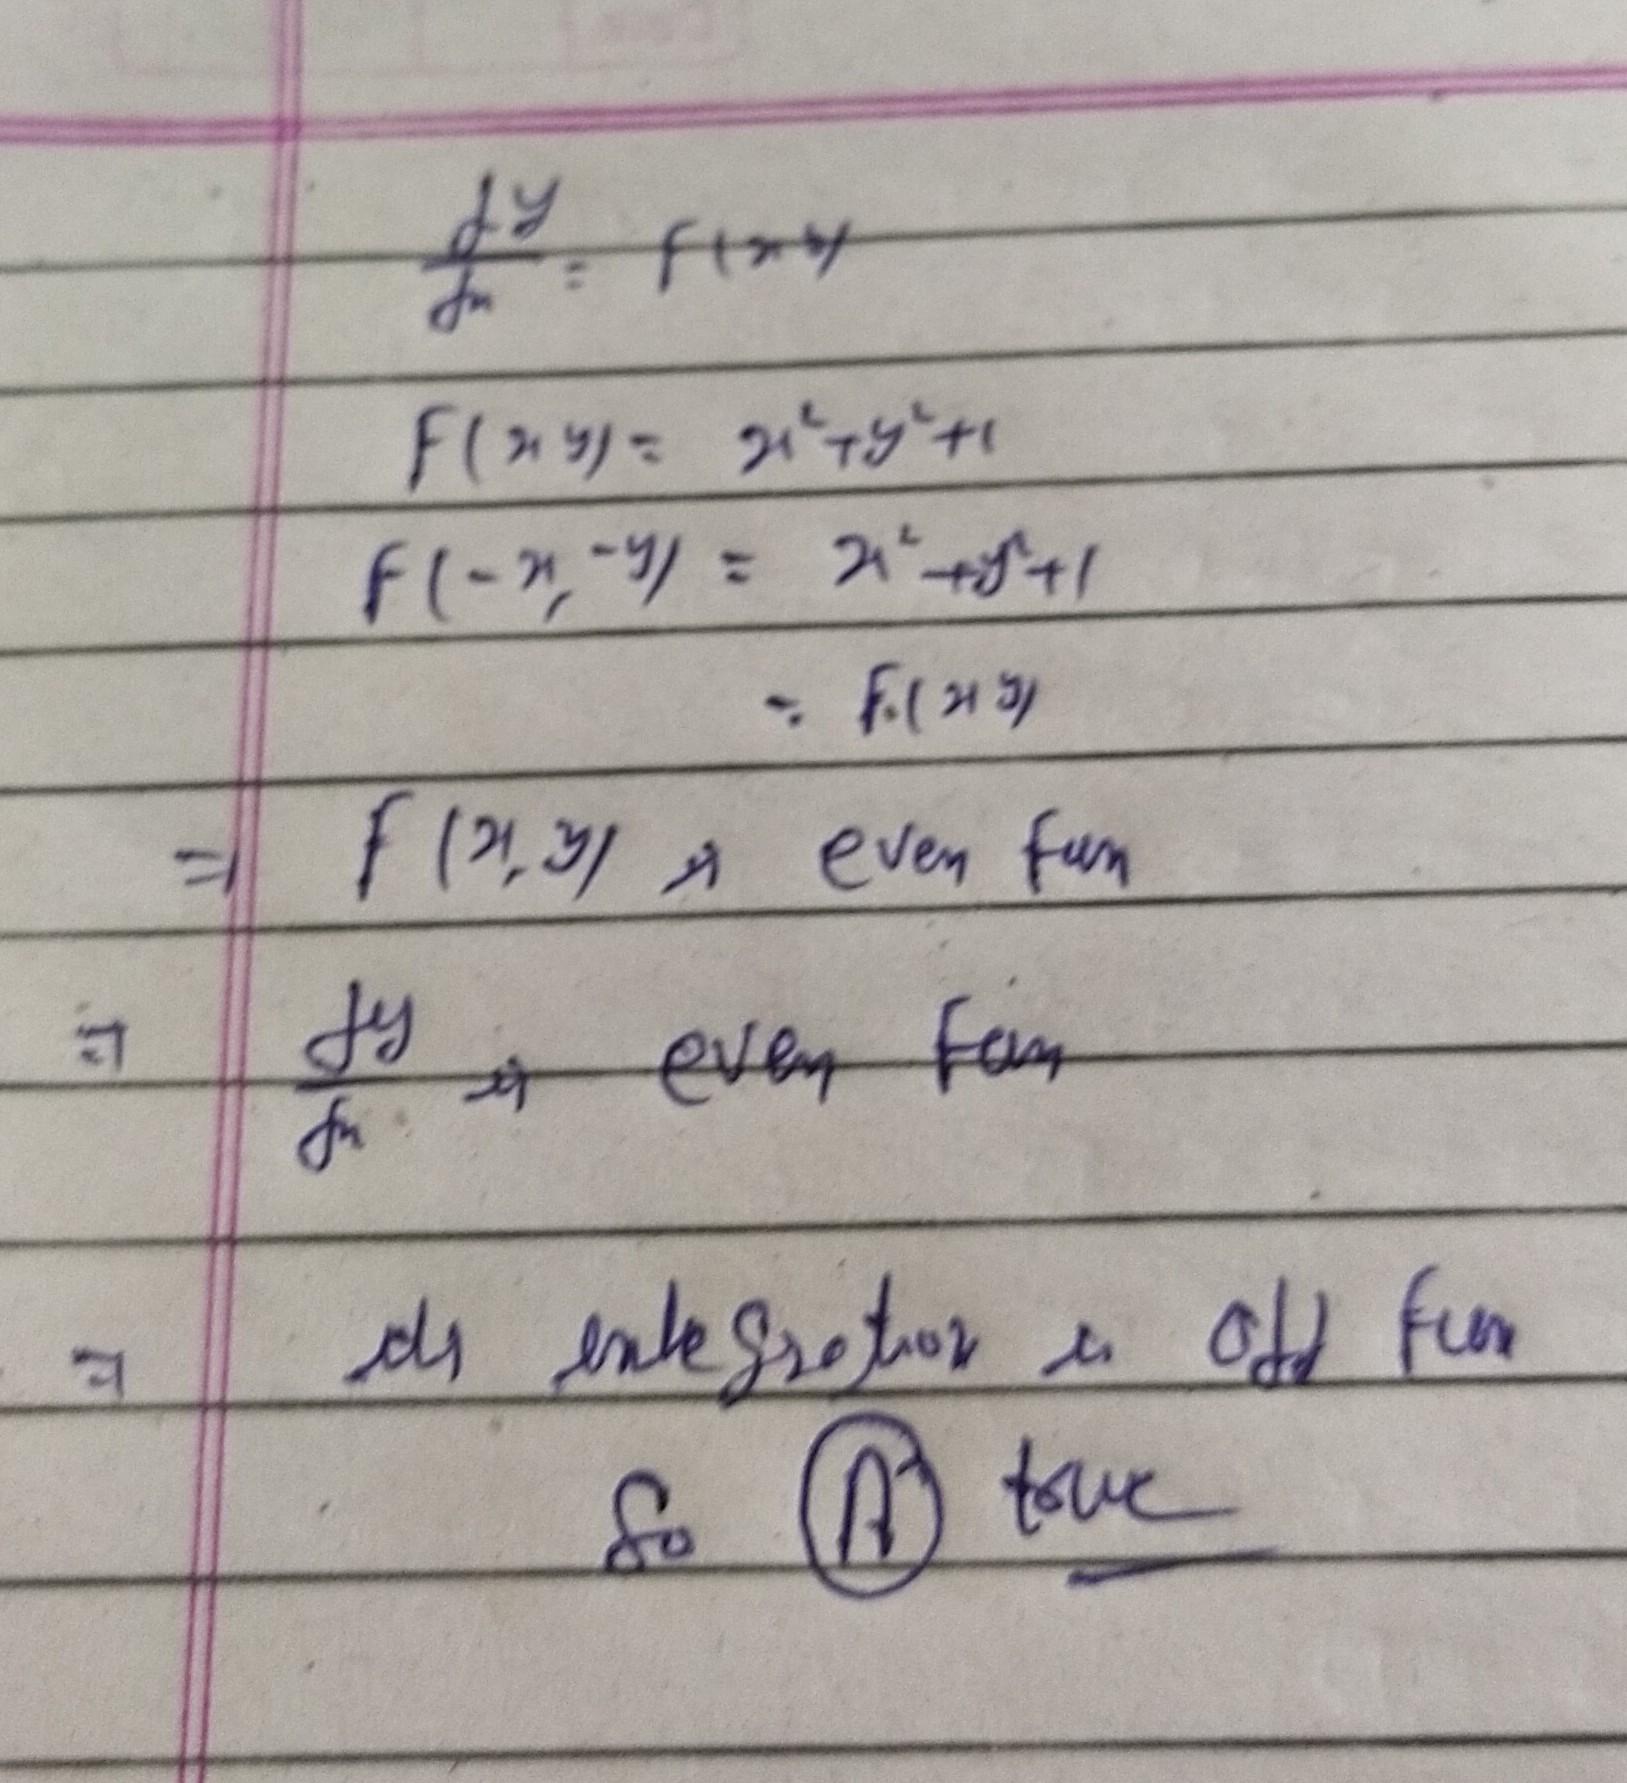 dy/dx = f(x y)
F(x y) = x²+y²+1
F(-x, -y) = x²+y²+1
= F(x y)
⇒ F(x, y) is even fun
⇒ dy/dx is even fun
⇒ its integration is odd fun
So (A) true